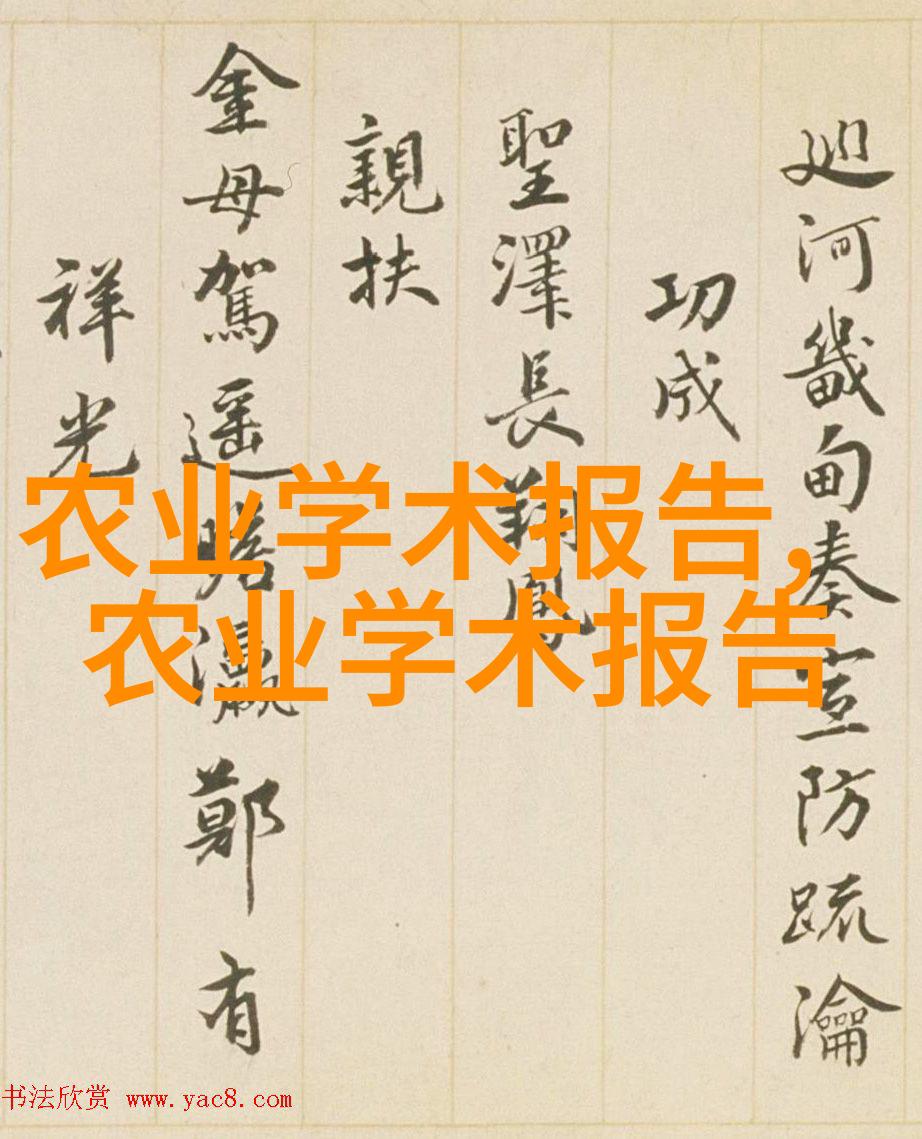 廵河畿甸奏宣防疏瀹
功成
聖澤長翔鳳
親扶
金母駕遥瞻瀛鄭有
祥光
农业学术报告,
农业学术报告
书法欣赏 www.yac8.com